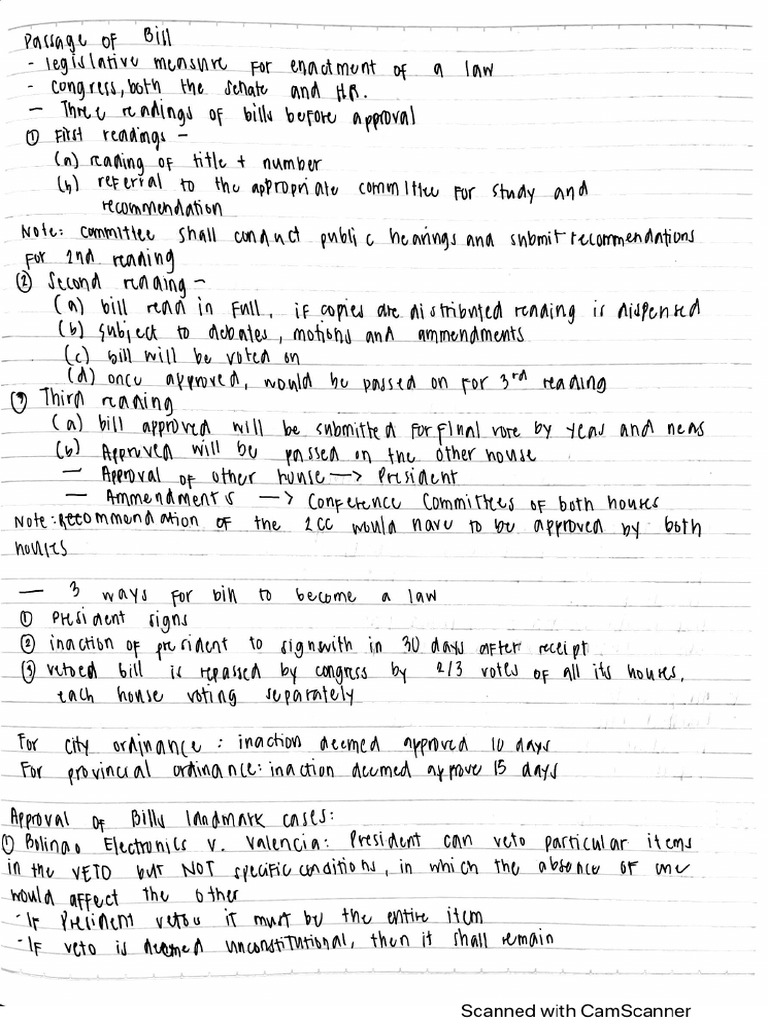 Passage of Bill
- legislative measure for enactment of a law
- congress, both the senate and HR.
- Three readings of bills before approval
① First readings -
(a) reading of title + number
(b) referral to the appropriate committee for study and
recommendation
Note: committee shall conduct public hearings and submit recommendations
for 2nd reading
② Second reading -
(a) bill read in full, if copies are distributed reading is dispensed
(b) subject to debates, motions and ammendments
(c) bill will be voted on
(d) once approved, would be passed on for 3rd reading
③ Third reading
(a) bill approved will be submitted for final vote by yeas and neas
(b) Approved will be passed on the other house
- Approval of other house -> President
- Ammendments -> Conference Committees of both houses
Note: Recommendation of the 2CC would have to be approved by both
houses
- 3 ways for bill to become a law
① President signs
② inaction of president to sign with in 30 days after receipt
③ vetoed bill is repassed by congress by 2/3 votes of all its houses,
each house voting separately
For city ordinance: inaction deemed approved 10 days
For provincial ordinance: inaction deemed approve 15 days
Approval of Bills landmark cases:
① Bolinao Electronics v. Valencia: President can veto particular items
in the VETO but NOT specific conditions, in which the absence of one
would affect the other
- If President vetos it must be the entire item
- If veto is deemed unconstitutional, then it shall remain
Scanned with CamScanner